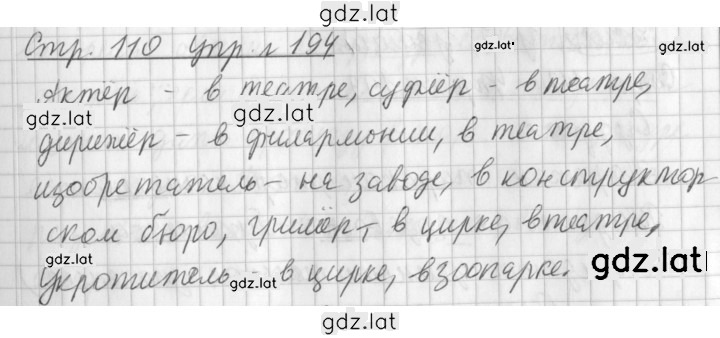 gdz.lat
Стр. 110 упр. 194
gdz.lat
gdz.lat
Актёр - в театре, суфлёр - в театре,
gdz.lat
gdz.lat
дирижёр - в филармонии, в театре,
изобретатель - на заводе, в конструктор-
ском бюро, гримёр - в цирке, в театре,
gdz.lat
gdz.lat
Укротитель - в цирке, в зоопарке.
gdz.lat
gdz.lat